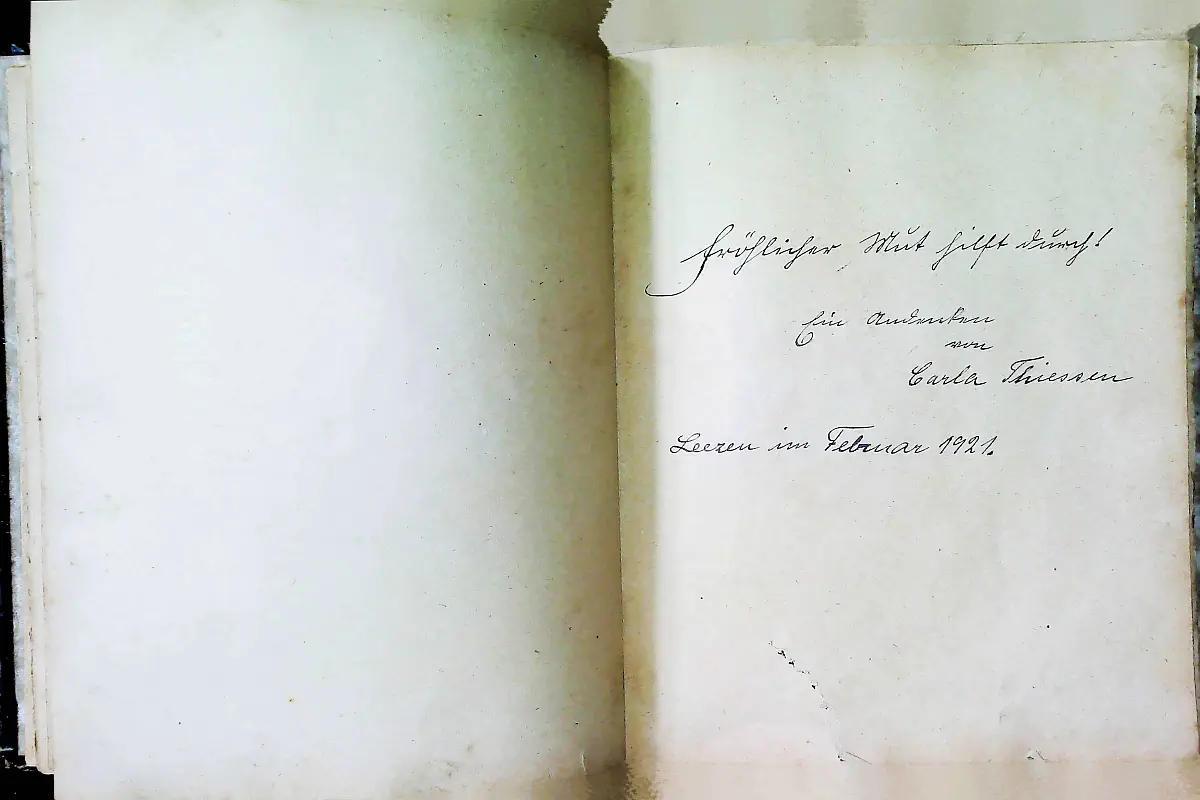 Fröhlicher Mut hilft durch!
Ein Andenken
von
Carla Thiessen
Leezen im Februar 1921.